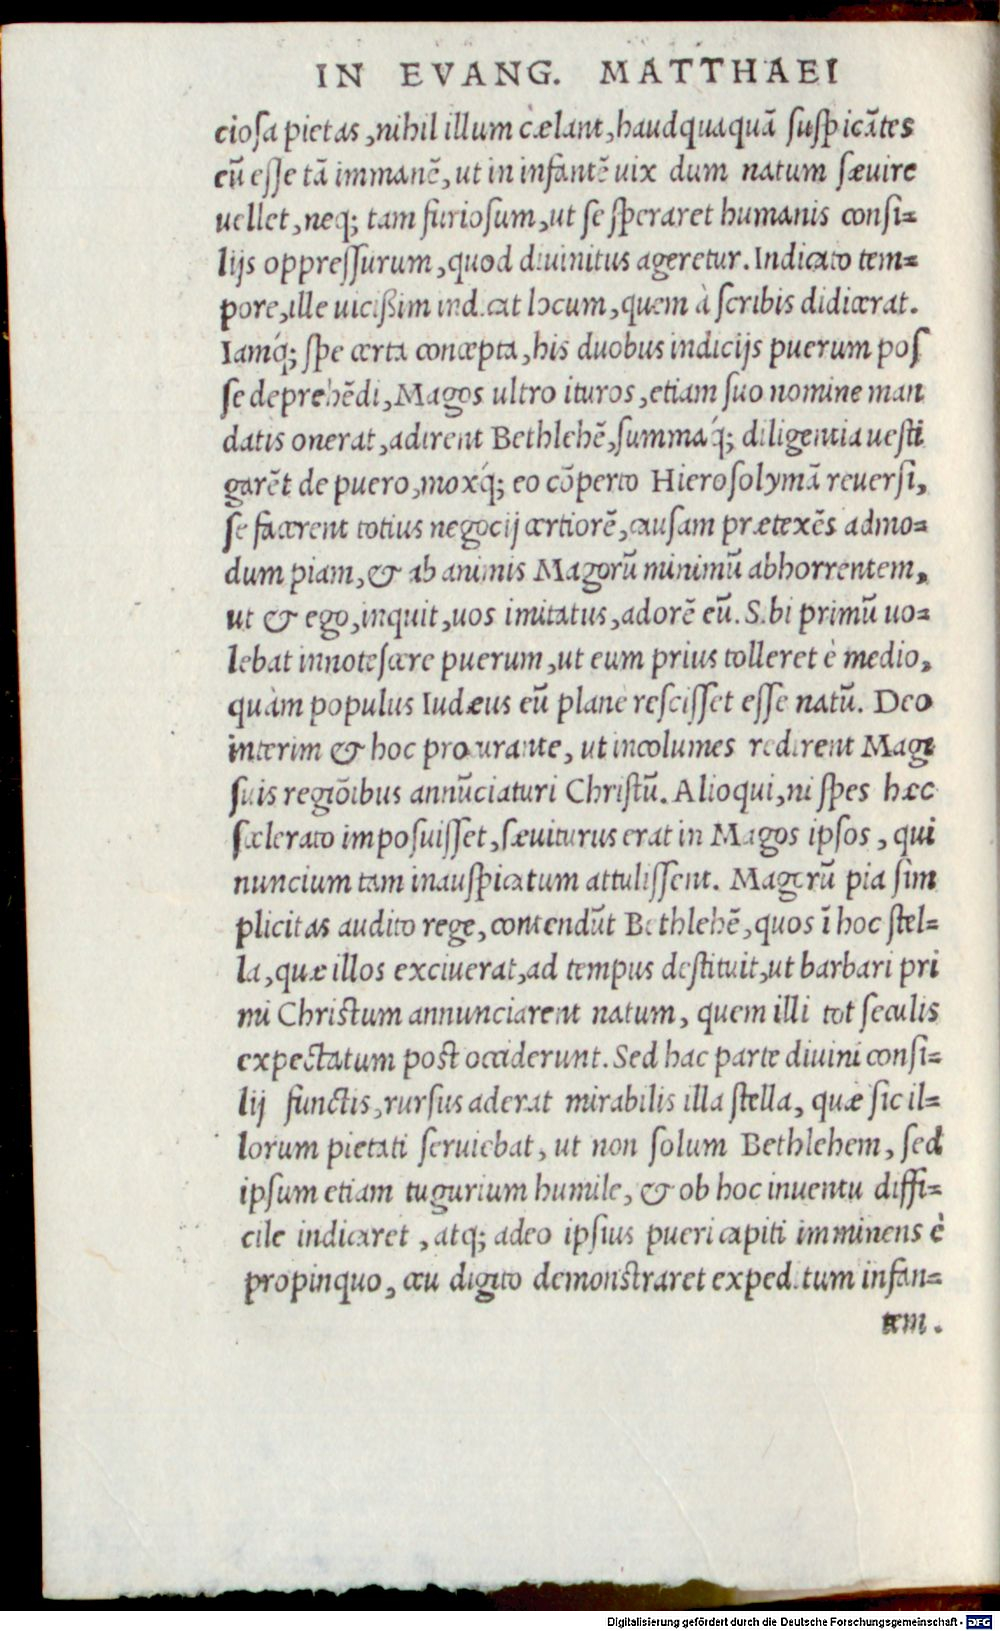 IN EVANG. MATTHAEI
ciosa pietas, nihil illum cælant, haudquaquā suspicātes
eū esse tā immanē, ut in infantē uix dum natum sæuire
uellet, neq; tam furiosum, ut se speraret humanis consi=
lijs oppressurum, quod diuinitus ageretur. Indicato tem=
pore, ille uicißim indicat locum, quem à scribis didicerat.
Iamq́; spe certa concepta, his duobus indicijs puerum pos
se deprehēdi, Magos ultro ituros, etiam suo nomine man
datis onerat, adirent Bethlehē, summaq́; diligentia uesti
garēt de puero, moxq́; eo cōperto Hierosolymā reuersi,
se facerent totius negocij certiorē, causam prætexēs admo=
dum piam, & ab animis Magorū minimū abhorrentem,
ut & ego, inquit, uos imitatus, adorē eū. Sibi primū uo=
lebat innotescere puerum, ut eum prius tolleret è medio,
quàm populus Iudæus eū plane rescisset esse natū. Deo
interim & hoc procurante, ut incolumes redirent Magi
suis regiōibus annūciaturi Christū. Alioqui, ni spes hæc
scelerato imposuisset, sæuiturus erat in Magos ipsos, qui
nuncium tam inauspicatum attulissent. Magorū pia sim
plicitas audito rege, contendūt Bethlehē, quos ī hoc stel=
la, quæ illos exciuerat, ad tempus destituit, ut barbari pri
mi Christum annunciarent natum, quem illi tot seculis
expectatum post occiderunt. Sed hac parte diuini consi=
lij functis, rursus aderat mirabilis illa stella, quæ sic il=
lorum pietati seruiebat, ut non solum Bethlehem, sed
ipsum etiam tugurium humile, & ob hoc inuentu diffi=
cile indicaret, atq; adeo ipsius pueri capiti imminens è
propinquo, ceu digito demonstraret expeditum infan=
tem.
Digitalisierung gefördert durch die Deutsche Forschungsgemeinschaft - DFG